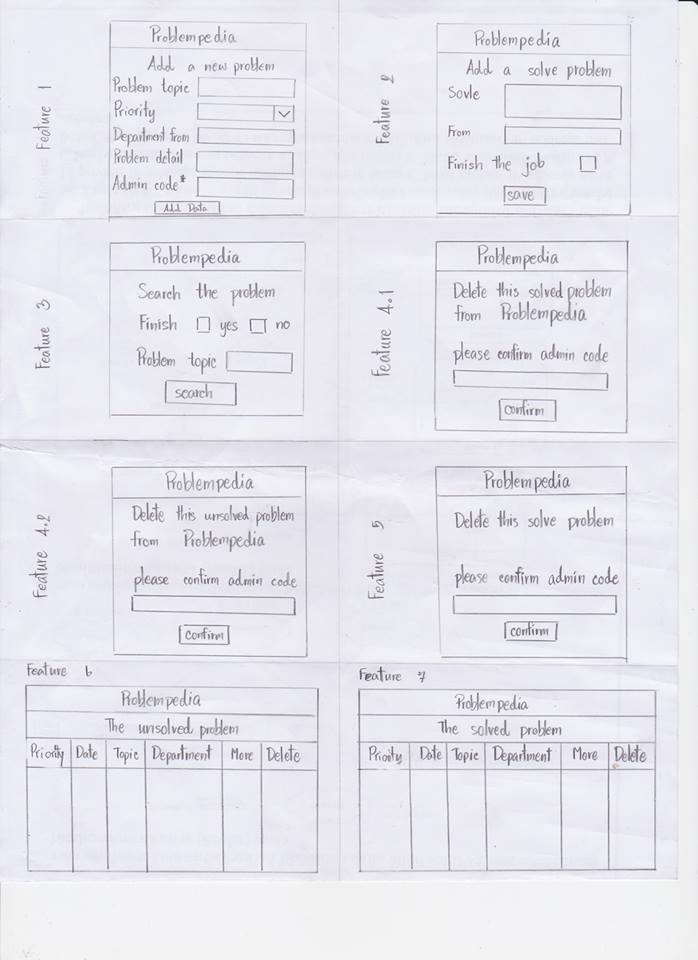 Feature 1
Problempedia
Add a new problem
Problem topic
Priority
Department from
Problem detail
Admin code*
Add Data
Feature 2
Problempedia
Add a solve problem
Sovle
From
Finish the job
save
Feature 3
Problempedia
Search the problem
Finish yes no
Problem topic
search
Feature 4.1
Problempedia
Delete this solved problem
from Problempedia
please confirm admin code
confirm
Feature 4.2
Problempedia
Delete this unsolved problem
from Problempedia
please confirm admin code
confirm
Feature 5
Problempedia
Delete this solve problem
please confirm admin code
confirm
Feature 6
Problempedia
The unsolved problem
Priority Date Topic Department More Delete
Feature 7
Problempedia
The solved problem
Priority Date Topic Department More Delete